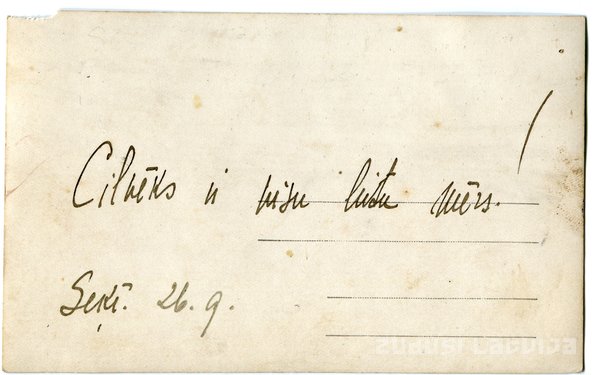 Cilvēks ir visu lietu mērs!
26.9.
zudusi Latvija